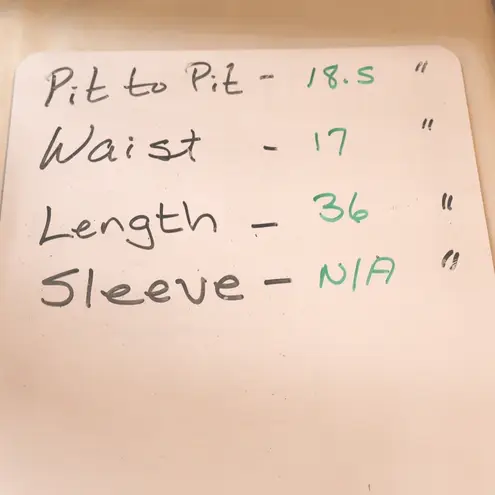 Pit to Pit - 18.5 "
Waist - 17 "
Length - 36 "
Sleeve - N/A "